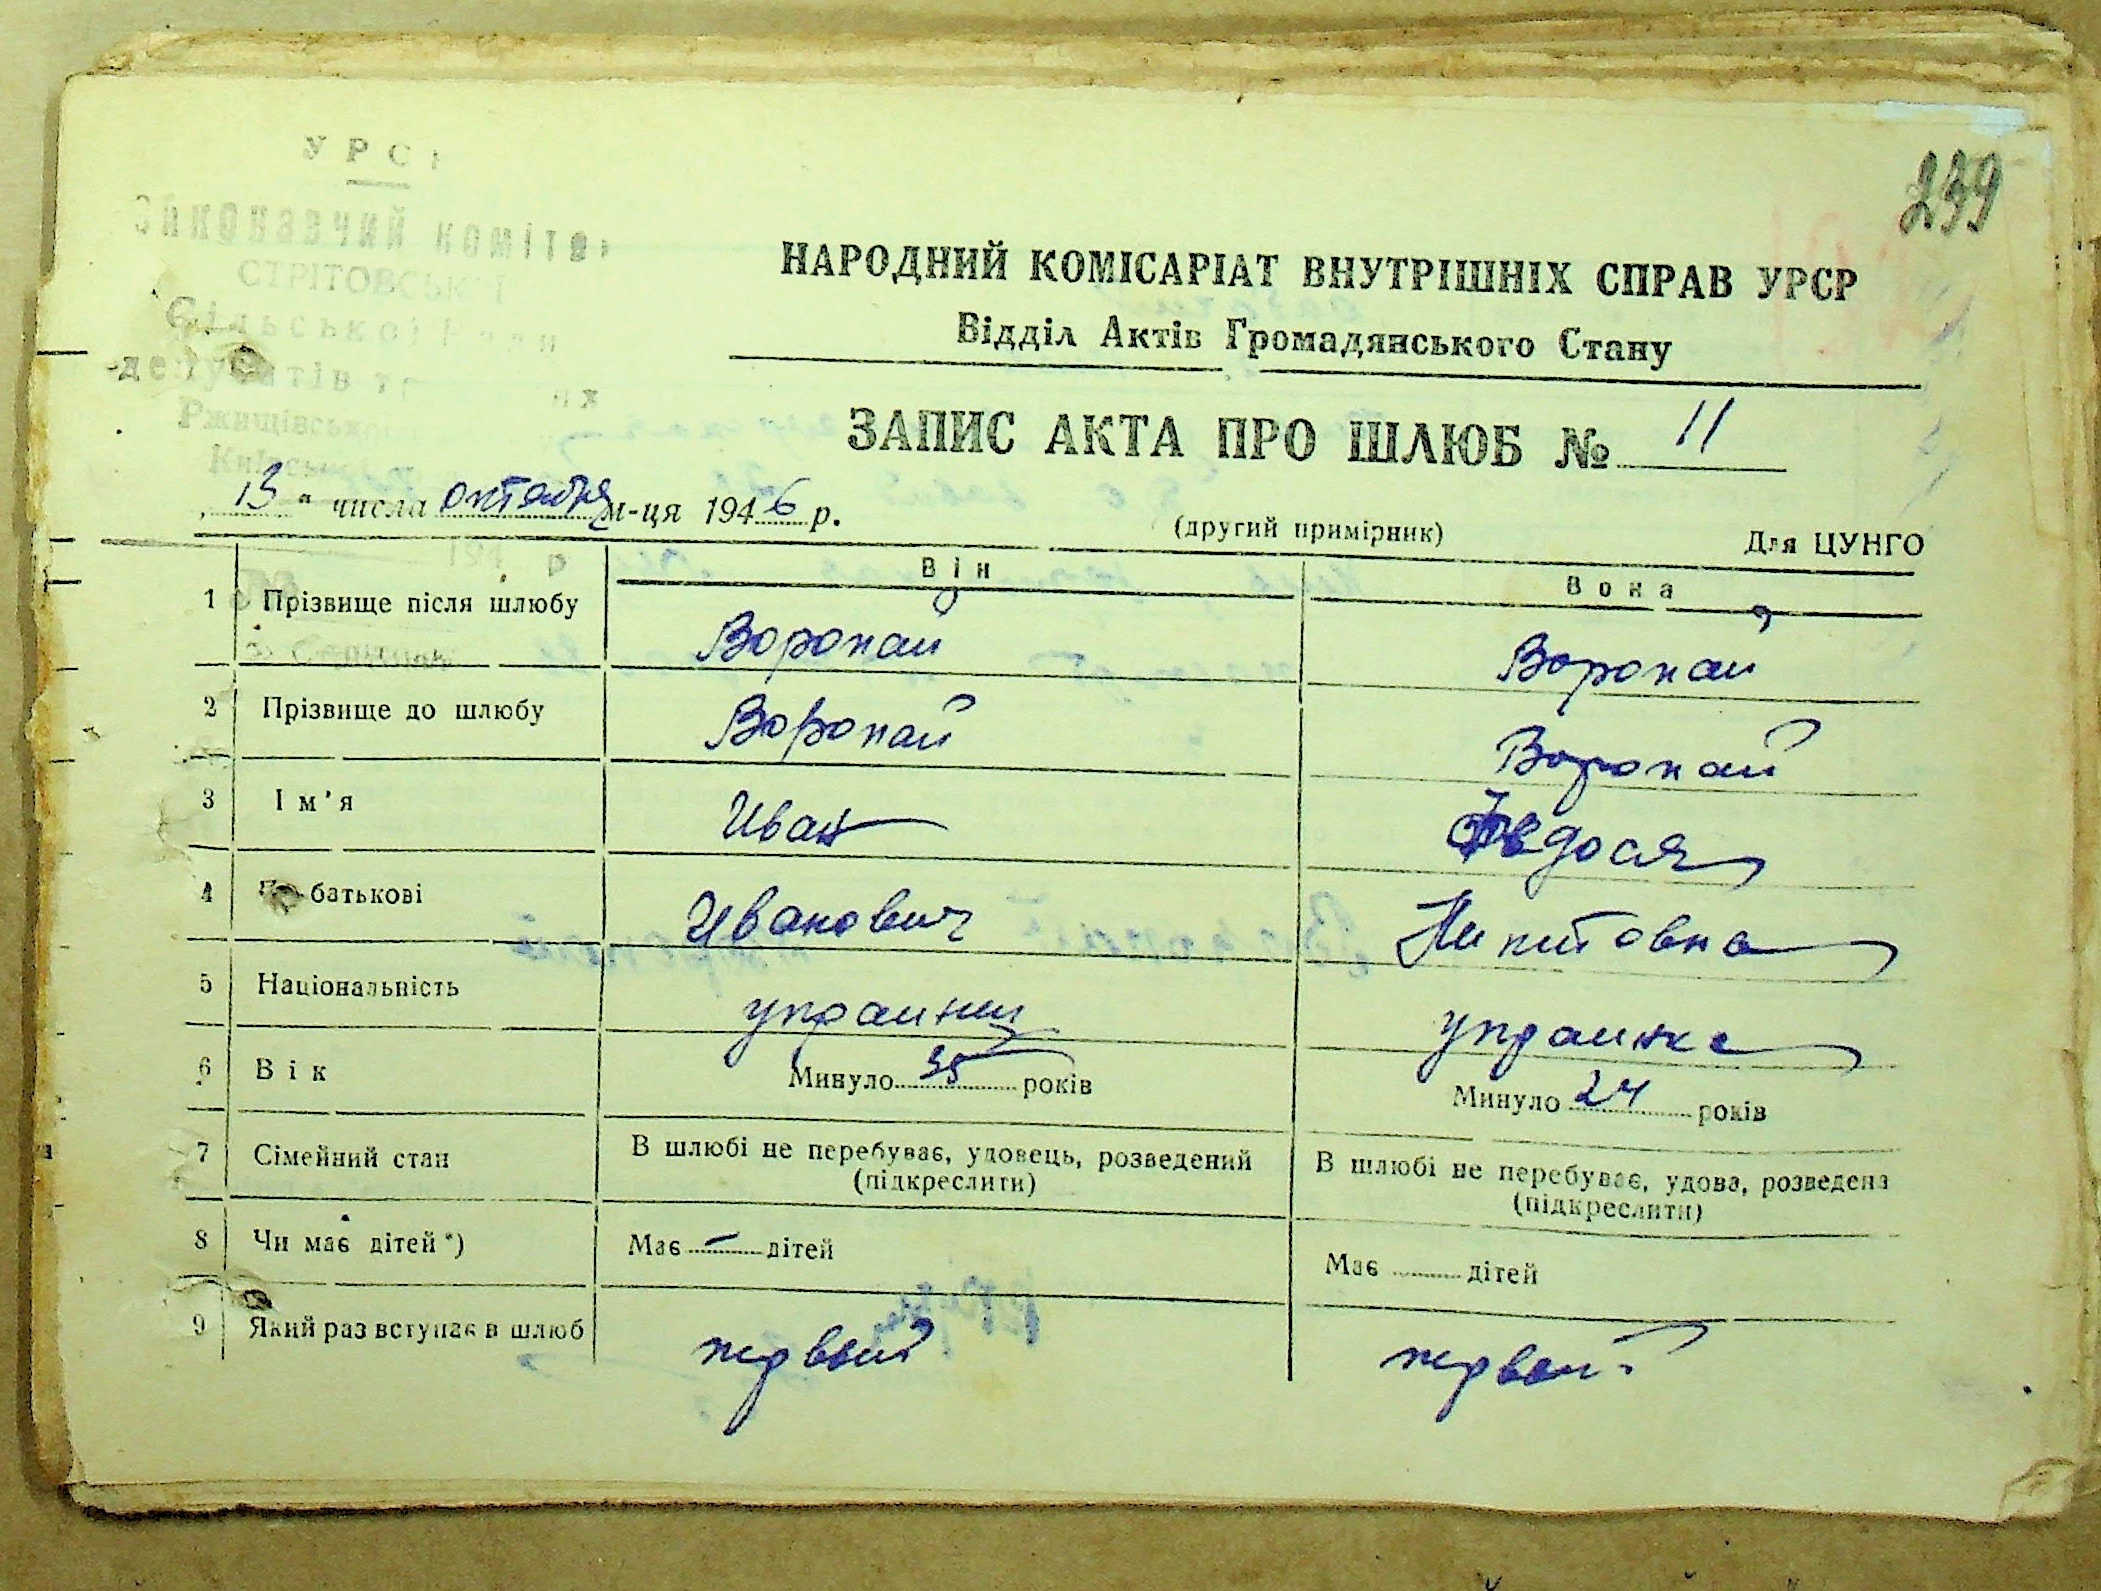 239
УРСР
Виконавчий комітет
СТРІТОВСЬКОЇ
Сільської Ради
депутатів
Ржищівського
НАРОДНИЙ КОМІСАРІАТ ВНУТРІШНІХ СПРАВ УРСР
Відділ Актів Громадянського Стану
ЗАПИС АКТА ПРО ШЛЮБ № 11
„13" числа октября м-ця 1946 р.
(другий примірник)
Для ЦУНГО
Він
Вона
1 Прізвище після шлюбу Воропай Воропай
2 Прізвище до шлюбу Воропай Воропай
3 Ім'я Иван Федосия
4 По батькові Иванович Никитовна
5 Національність украинец украинка
6 Вік Минуло 35 років Минуло 24 років
7 Сімейний стан В шлюбі не перебуває, удовець, розведений В шлюбі не перебуває, удова, розведена
(підкреслити) (підкреслити)
8 Чи має дітей*) Має – дітей Має дітей
9 Який раз вступає в шлюб первый первый